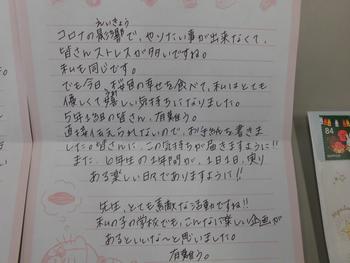 えいきょう
コロナの影響で、やりたい事が出来なくて、
皆さんストレスが多いですね。
私も同じです。
でも今日、桜餅の幸せを食べて、私はとても
優しくて嬉しい気持ちになりました。
5年1組の皆さん、有難う。
直接伝えられないので、お手紙を書きま
した。皆さんに、この気持ちが届きますように!!
また、6年生の1年間が、1日1日、実り
ある楽しい日々でありますように!!
先生、とても素敵な活動ですね!!
私の子の学校でも、こんなに楽しい企画が
あるといいな〜と思いました。
有難う。
84
NIPPON